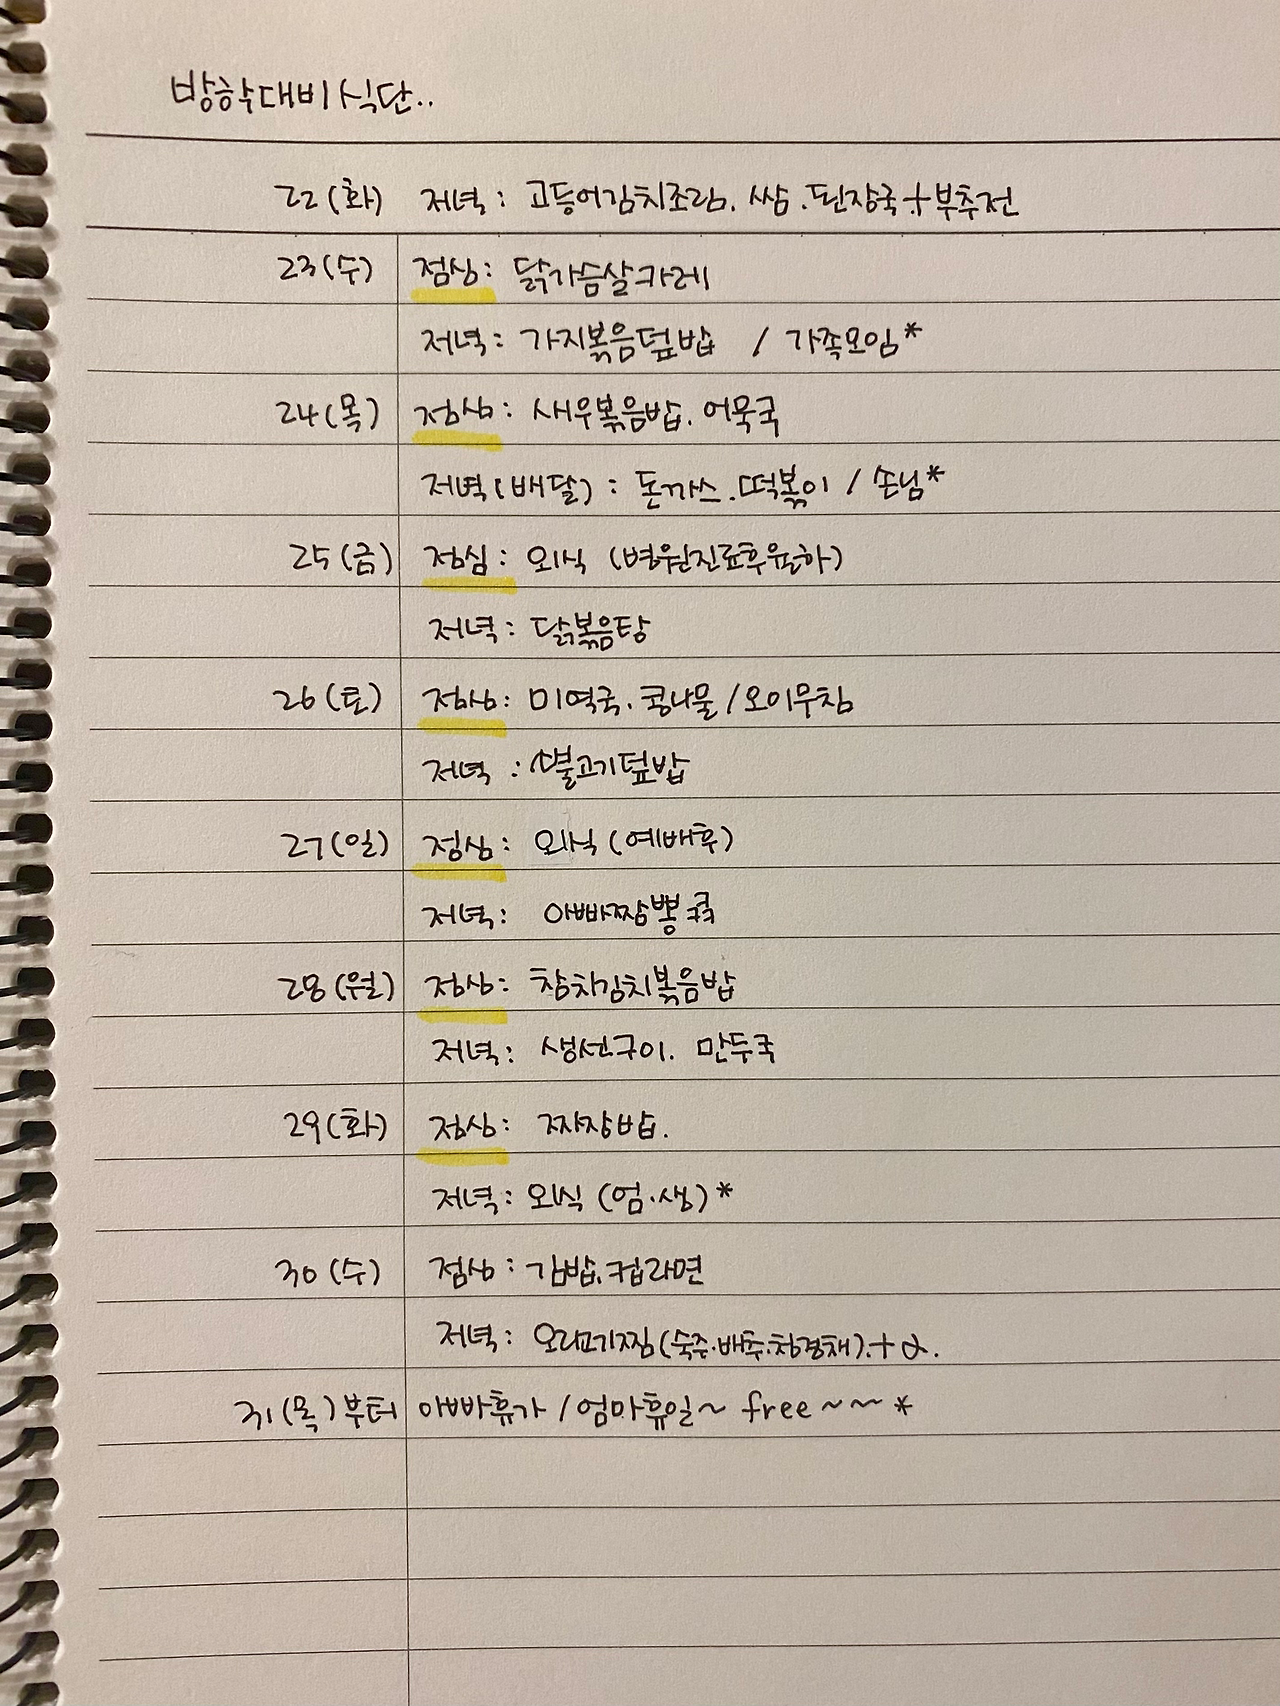 방학대비식단..
22(화) 저녁: 고등어김치조림. 쌈.된장국+부추전
23(수) 점심: 닭가슴살카레
저녁: 가지볶음덮밥 / 가족모임*
24(목) 점심: 새우볶음밥. 어묵국
저녁(배달): 돈까스.떡볶이 / 손님*
25(금) 점심: 외식 (병원진료후윤하)
저녁: 닭볶음탕
26(토) 점심: 미역국. 콩나물/오이무침
저녁: 불고기덮밥
27(일) 점심: 외식(예배후)
저녁: 아빠짬뽕쿡
28(월) 점심: 참치김치볶음밥
저녁: 생선구이. 만두국
29(화) 점심: 짜장밥.
저녁: 외식 (엄.생)*
30(수) 점심: 김밥.컵라면
저녁: 오리고기찜(숙주.배추.청경채)+α.
31(목)부터 아빠휴가 / 엄마휴일~ free~~~*